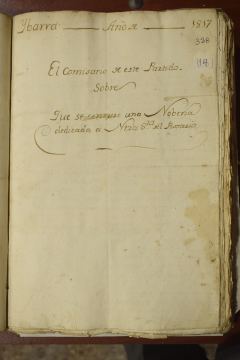 Ybarra Año de 1817
328
(14)
El Comisario de este Partido.
Sobre
Que se una Nobena
dedicada a Ntra Sra del Rosario